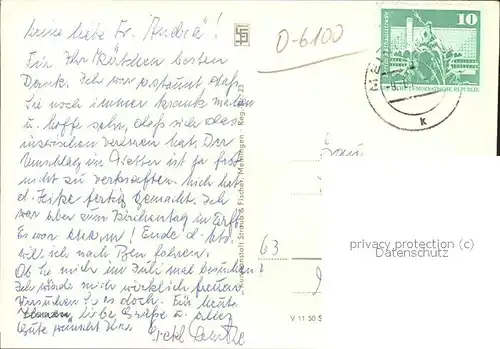 meine liebe Fr. Andrä!
Für Ihr Kärtchen besten
Dank. Ich war erstaunt daß
Sie noch immer krank
u. hoffe sehr, daß sich das
inzwischen verloren hat. Der
Umschlag im Wetter ist ja fast
nicht zu verkraften. Mich hat
d. Hitze fertig gemacht. Ich
war aber zum Kirchentag in Erft
Es war enorm! Ende d. Mts
will ich nach Bln fahren.
Ob Sie mich im Juli mal besuchen?
Ich würde mich wirklich freuen
Versuchen Sie es doch. Für heute
liebe Grüße u. alles
Gute wünscht Ihre
Kunstanstalt Straub & Fischer, Meiningen
Reg.
0-6100
10
DEUTSCHE DEMOKRATISCHE REPUBLIK
k
Frau
63
V 11 50 S
privacy protection (c)
Datenschutz